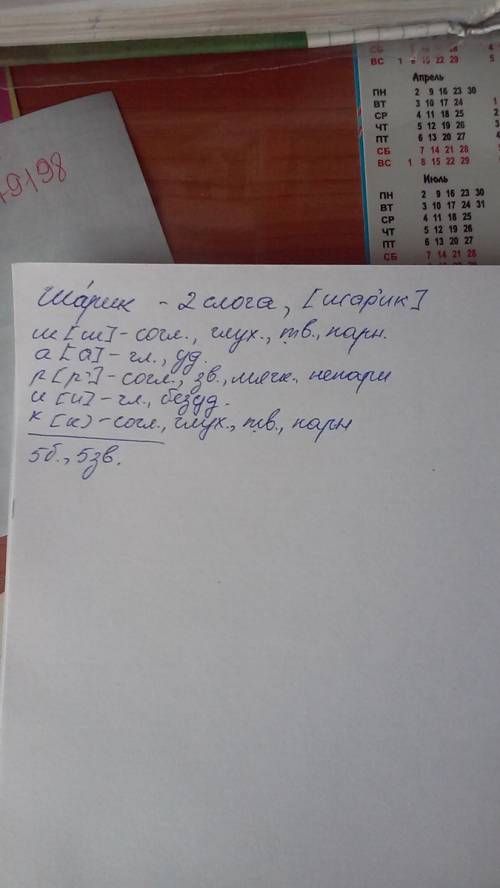 СБ
ВС 1 8 15 22 29
Апрель
ПН 2 9 16 23 30
ВТ 3 10 17 24
СР 4 11 18 25
ЧТ 5 12 19 26
ПТ 6 13 20 27
СБ 7 14 21 28
ВС 1 8 15 22 29
Июль
ПН 2 9 16 23 30
ВТ 3 10 17 24 31
СР 4 11 18 25
ЧТ 5 12 19 26
ПТ 6 13 20 27
СБ 7 14 21 28
79198
Ша́рик - 2 слога, [шар'ик]
ш [ш] - согл., глух., тв., парн.
а [а] - гл., уд.
р [р'] - согл., зв., мягк., непарн
и [и] - гл., безуд.
к [к] - согл., глух., тв., парн
5б., 5зв.